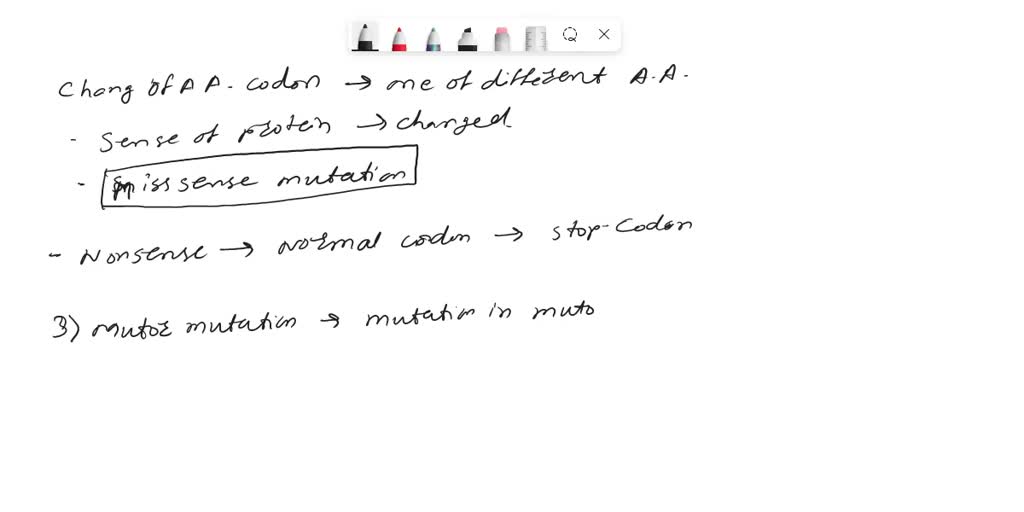 Chang of A A. codon → one of different A.A.
- Sense of protein → changed
- missense mutation
- Nonsense → Normal codon → stop-codon
3) mutor mutation → mutation in muto